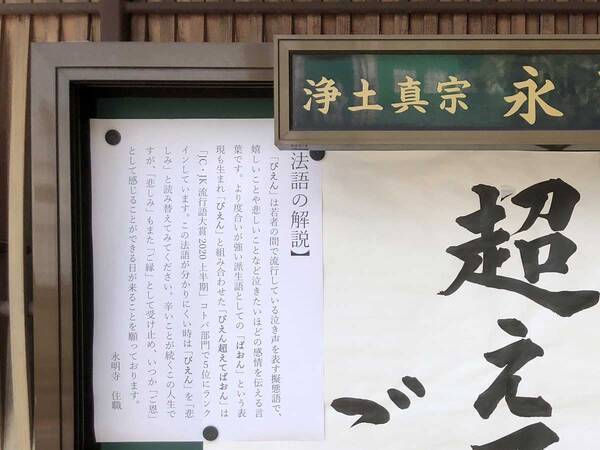 浄土真宗 永
超え
ご
法語の解説】
「ぴえん」は若者の間で流行している泣き声を表す擬態語で、
嬉しいことや悲しいことなど泣きたいほどの感情を伝える言
葉です。より度合いが強い派生語としての「ぱおん」という表
現も生まれ「ぴえん」と組み合わせた「ぴえん超えてぱおん」は
「JC・JK流行語大賞2020上半期」コトバ部門で5位にランク
インしています。この法語が分かりにくい時は「ぴえん」を「悲
しみ」と読み替えてみてください。辛いことが続くこの人生で
すが、「悲しみ」もまた「ご縁」として受け止め、いつか「ご恩」
として感じることができる日が来ることを願っております。
永明寺 住職